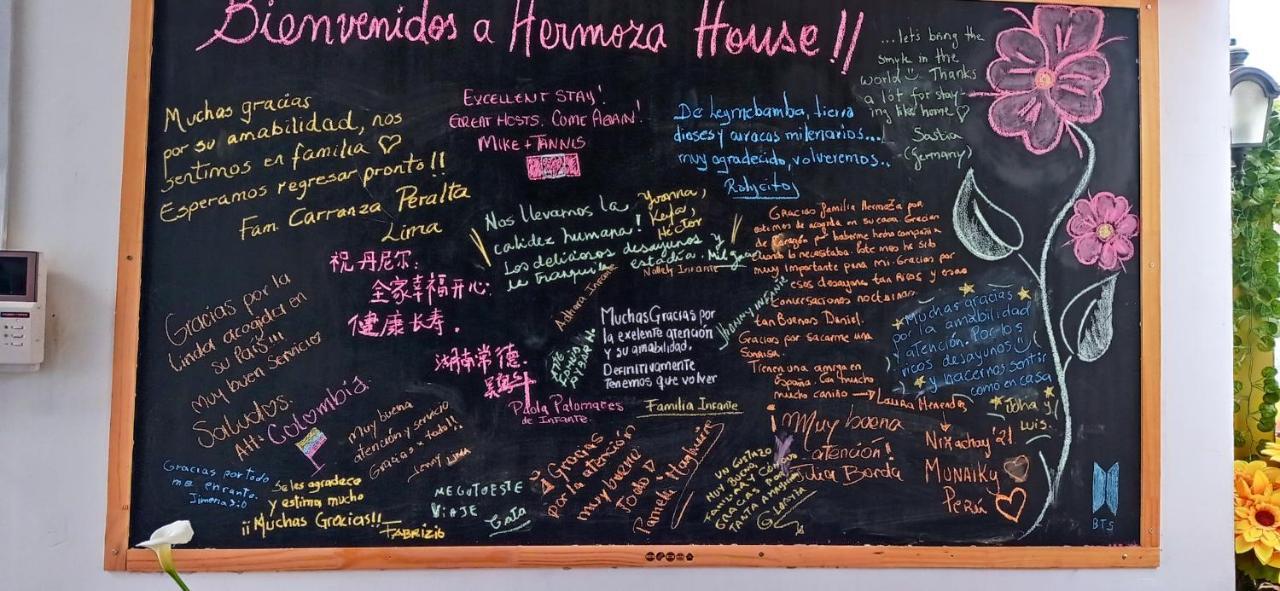 Bienvenidos a Hermoza House!!
Muchas gracias
por su amabilidad, nos
sentimos en familia ♡
Esperamos regresar pronto!!
Fam. Carranza Peralta
Lima
EXCELLENT STAY!
GREAT HOSTS. COME AGAIN!
MIKE + TANNIS
De Leymebamba, tierra
dioses y curacas milenarios...
muy agradecido, volveremos..
Ralycitos
...let's bring the
smyle in the
world Thanks
a lot for stay-
ing like home ♡
Saskia
(Germany)
Nos llevamos la
calidez humana!
Los deliciosos desayunos y
estadía.
Yvonna,
Keyla,
Héctor
Gracias familia Hermoza por
de corazón por haberme hecho compañia
cuando lo necesitaba. Este mes ha sido
muy importante para mi. Gracias por
esos desayunos tan Ricos y esas
Conversaciones nocturnas
tan Buenas Daniel.
Gracias por sacarme una
Sonrisa.
Tienen una amiga en
España. Con mucho
mucho cariño → Laura Menendez
祝丹尼尔:
全家幸福开心.
健康长寿.
湖南常德.
Gracias por la
linda acogida en
su país!!!
muy buen servicio
Saludos.
Att: Colombia.
Aitana Infante
Nolely Infante
Jhanny Infante
Muchas Gracias por
la exelente atención
y su amabilidad,
Definitivamente
Tenemos que volver
Paola Palomares
de Infante.
Familia Infante
Muchas gracias
por la amabilidad
y atención. Por los
ricos desayunos
y hacernos sentir
como en casa
Joha y
Luis.
Muy buena
atención y servicio
Gracias x todo!!
Jenny Lima
Gracias por todo
me encanto.
Jimena :)
Se les agradece
y estima mucho
¡¡Muchas Gracias!!
Fabrizio
ME GUTO ESTE
VIAJE
Gracias
por la atención
muy bueno
todo
Pamela
UN GUSTAZO
MUY BUENA
GRACIAS POR
TANTA AMABILIDAD
Muy buena
atención!
Julia Borda
Nikachay '21
MUNAIKY
Perú
BTS